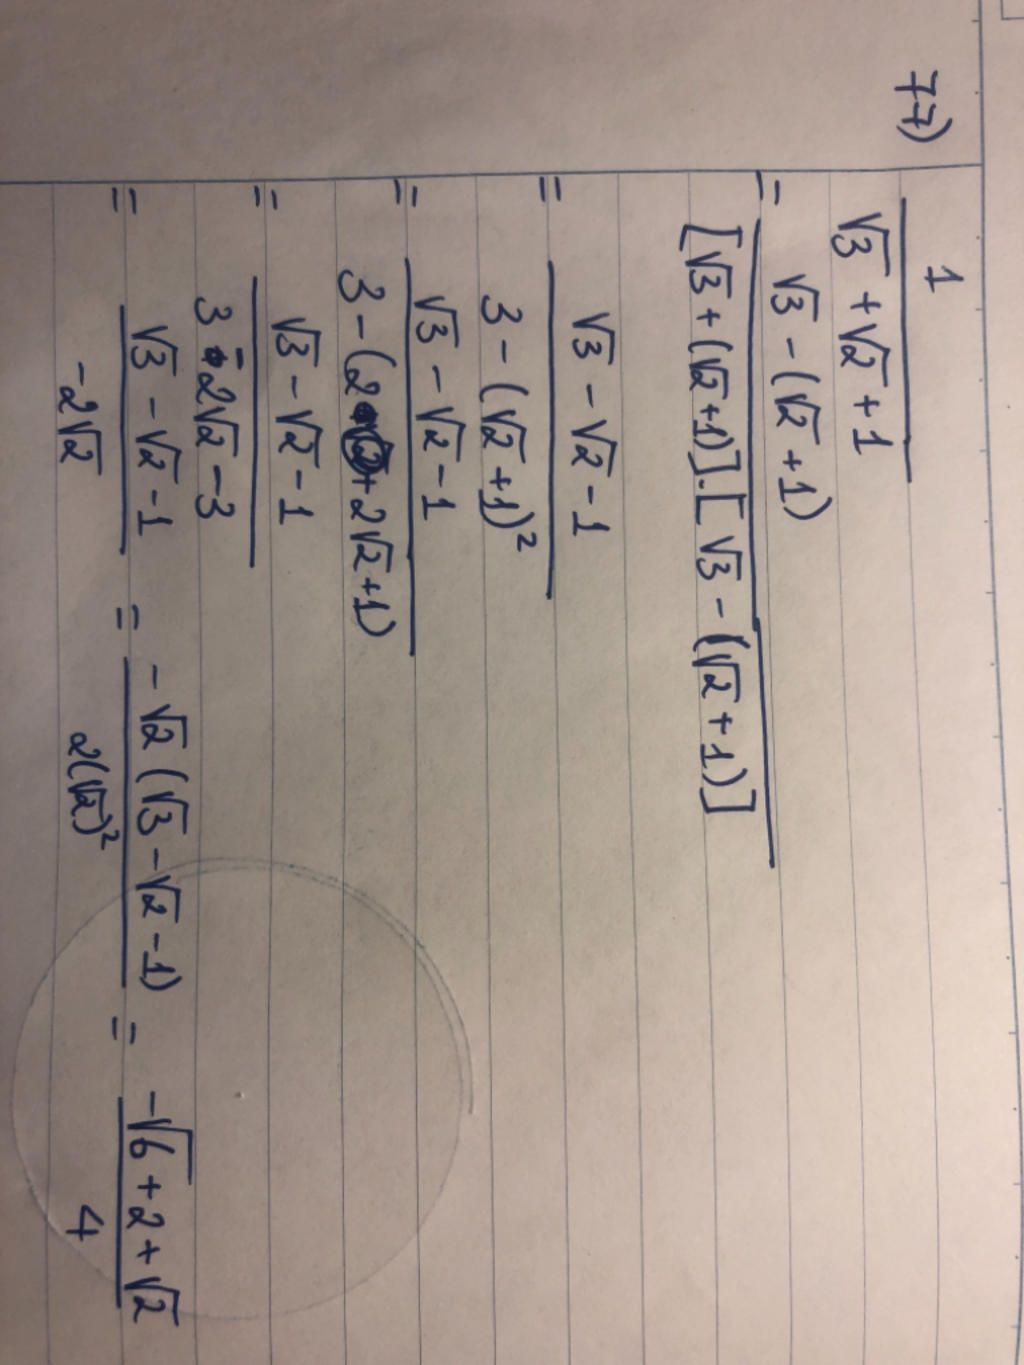 77)
1
√3 + √2 + 1
= √3 - (√2 + 1)
[√3 + (√2 + 1)] . [√3 - (√2 + 1)]
= √3 - √2 - 1
3 - (√2 + 1)²
= √3 - √2 - 1
3 - (2 + 2√2 + 1)
= √3 - √2 - 1
3 - 2√2 - 3
= √3 - √2 - 1 = -√2 (√3 - √2 - 1) = -√6 + 2 + √2
-2√2 2(√2)² 4